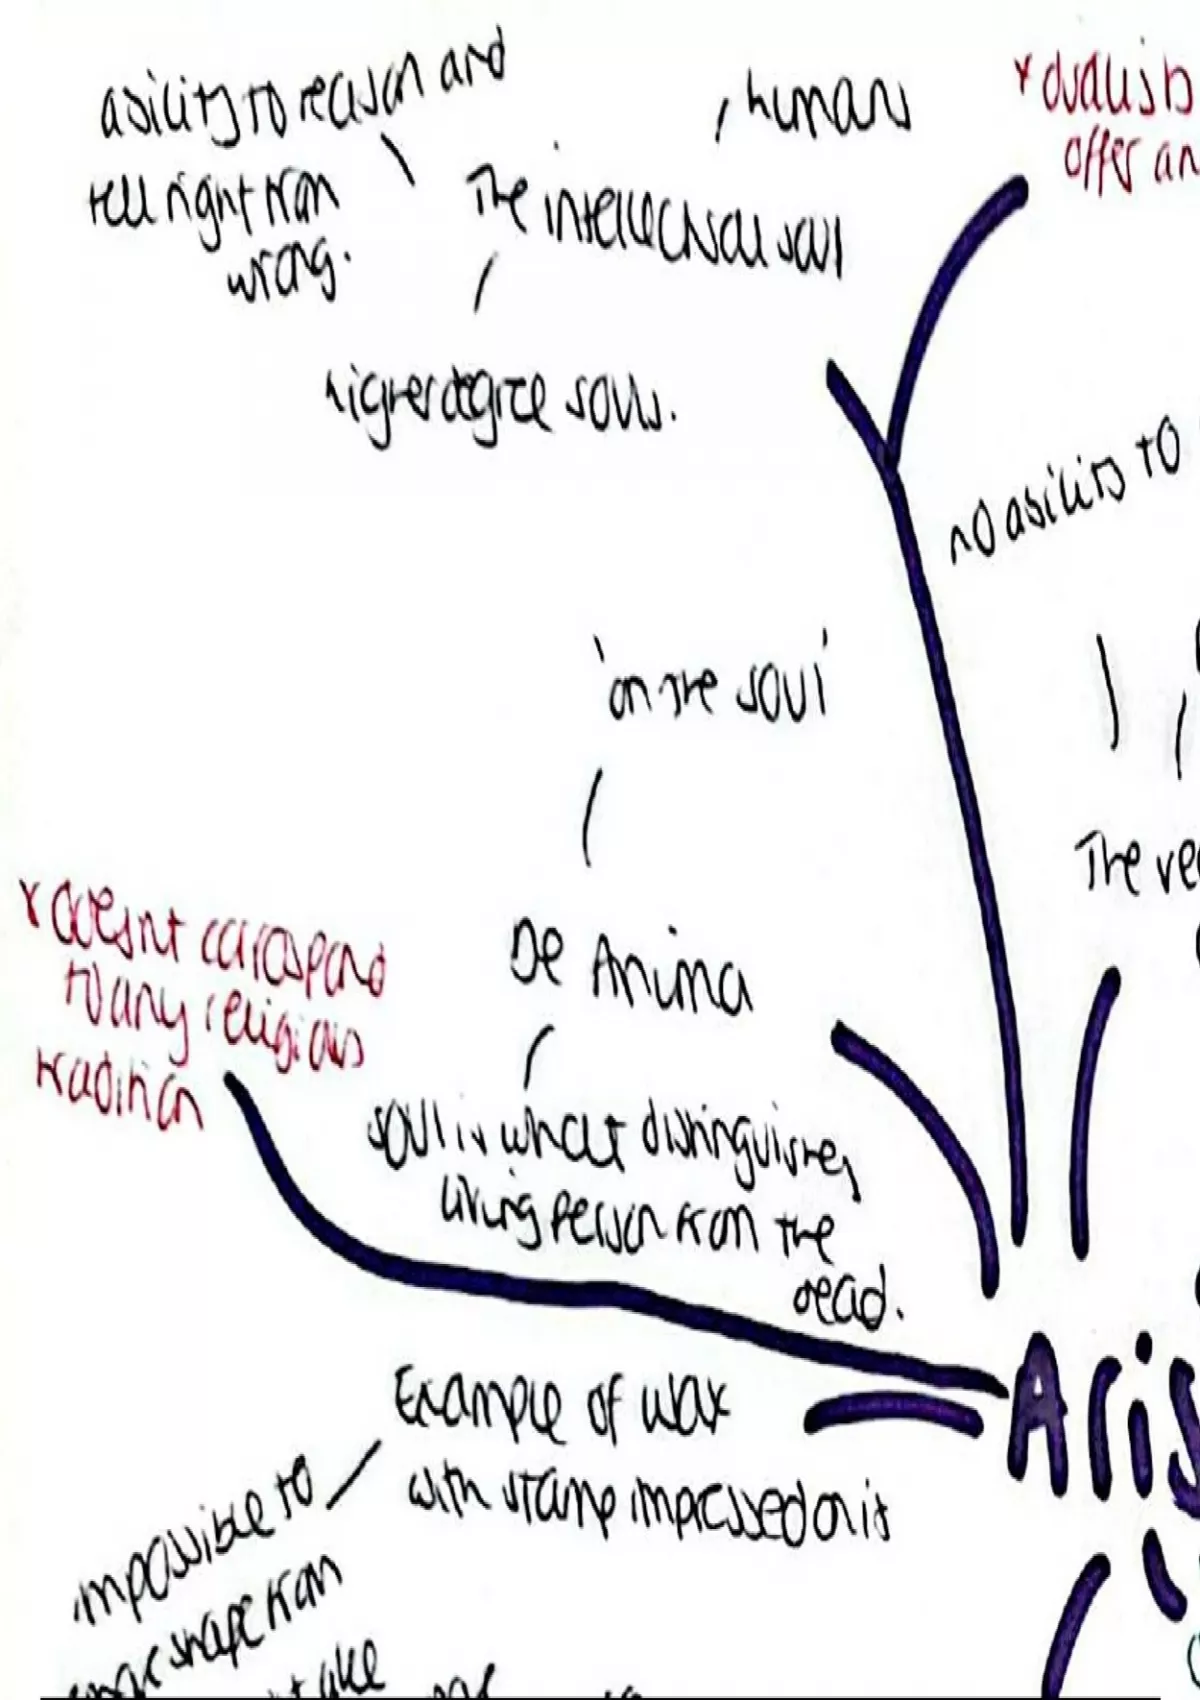 ability to reason and
tell right from
wrong.
humans
The intellectual soul
higher degree souls.
* dualists
offer an
no ability to
'on the soul'
The ve
* doesnt correspond
to any religious
tradition
De Anima
soul is what distinguishes
living person from the
dead.
Aris
Example of wax
with stamp impressed on it
impossible to
shape from